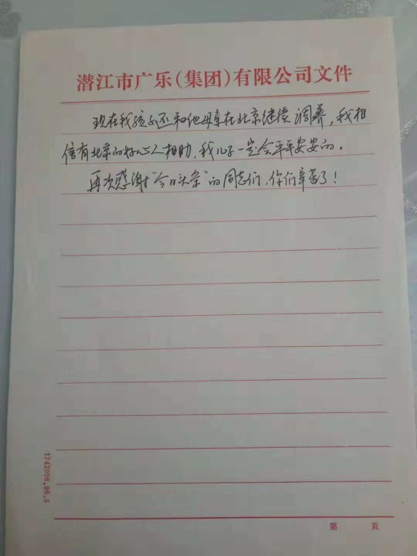 潜江市广乐(集团)有限公司文件
现在我孩子还和他母亲在北京继续调养，我相
信有北京的好心人相助，我儿子一定会平平安安的。
再次感谢“今日头条”的同志们，你们辛苦了！
第 页